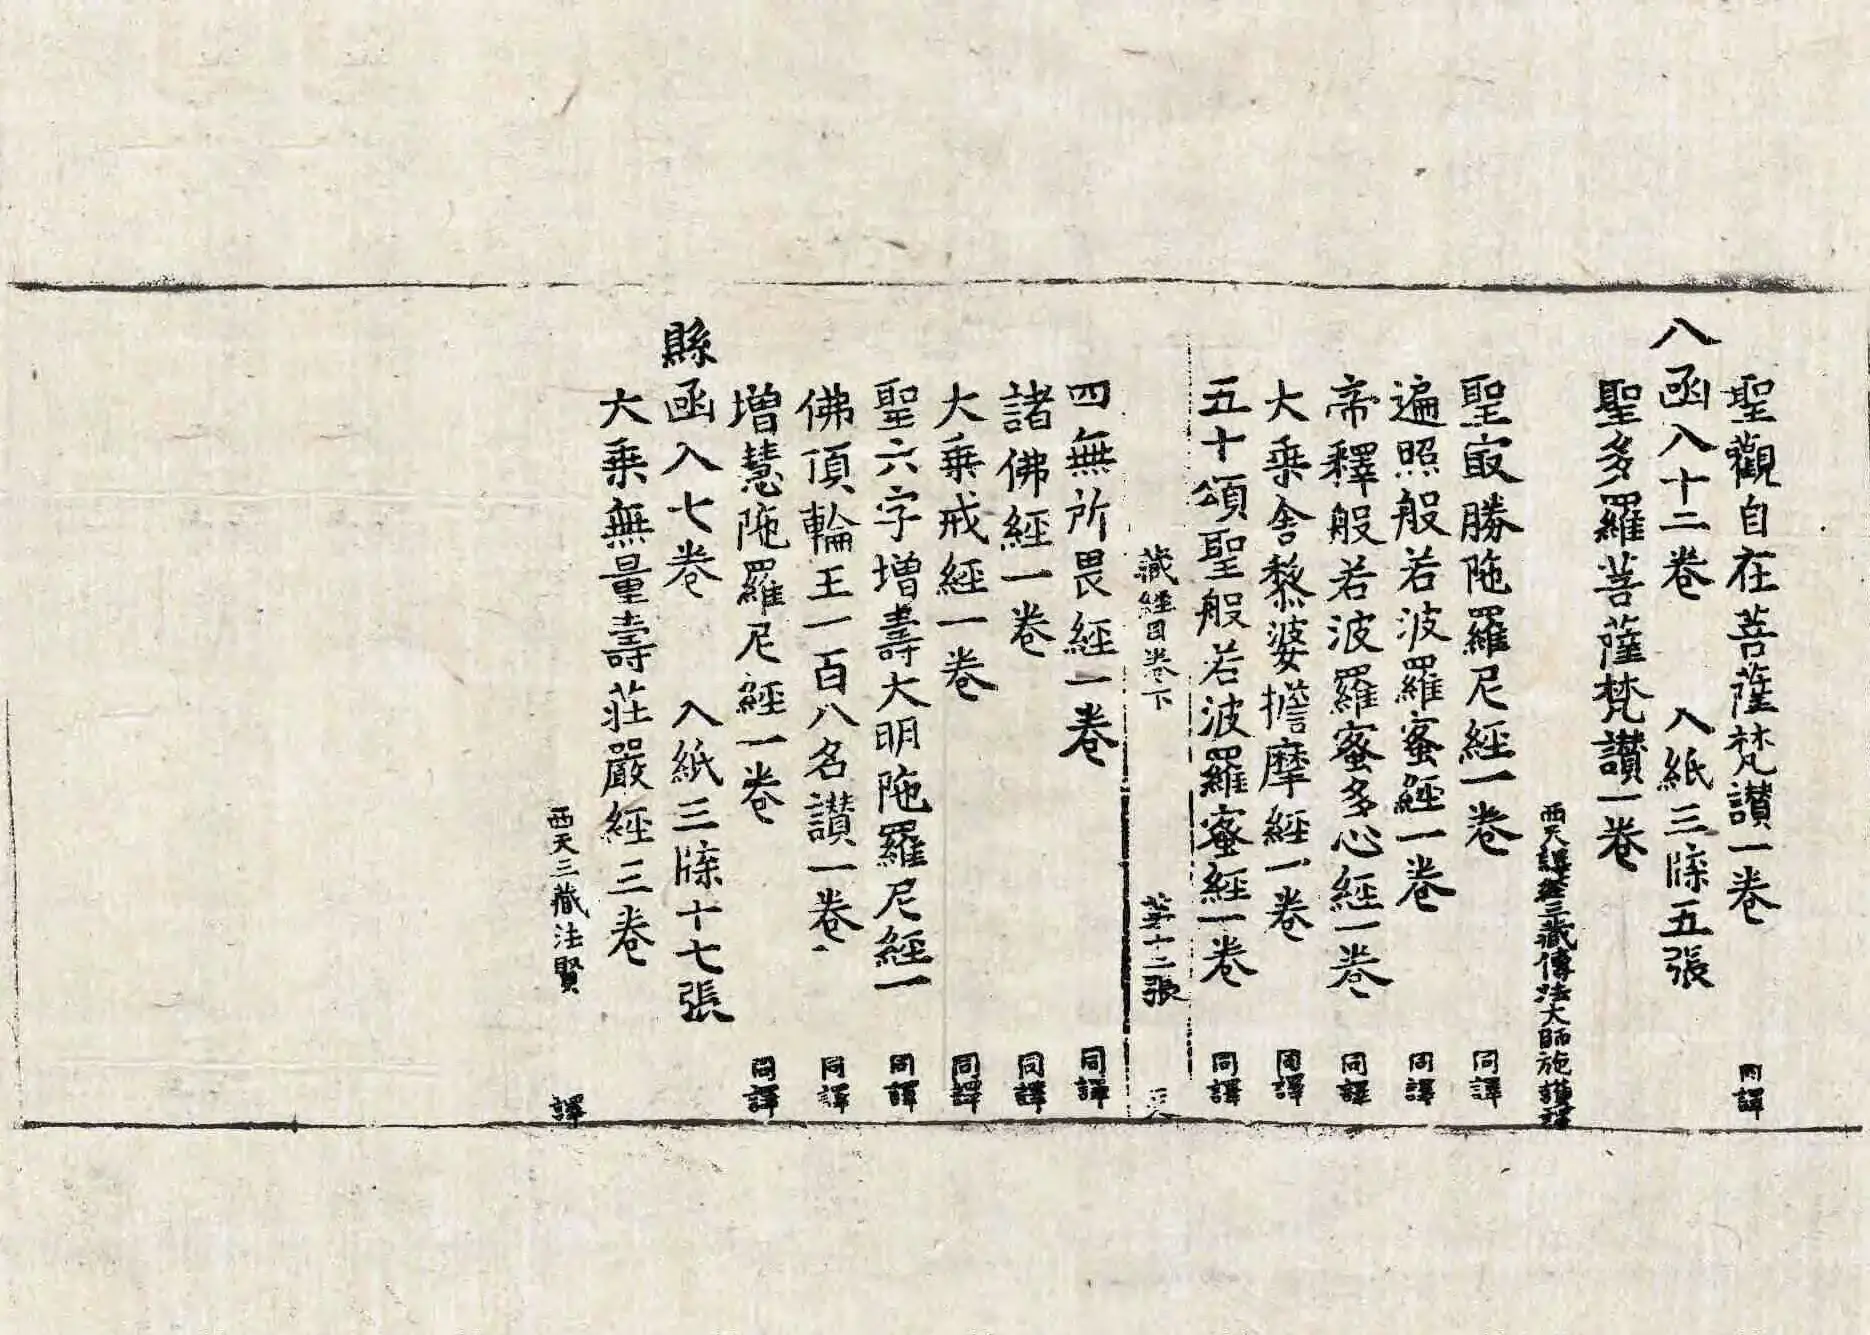 聖觀自在菩薩梵讃一卷 同譯
八函入十二卷 入紙三牒五張
聖多羅菩薩梵讃一卷
西天譯經三藏傳法大師施護譯
聖㝡勝陁羅尼經一卷 同譯
遍照般若波羅蜜經一卷 同譯
帝釋般若波羅蜜多心經一卷 同譯
大乘舍黎娑擔摩經一卷 同譯
五十頌聖般若波羅蜜經一卷 同譯
藏經目卷下 苐十二張
四無所畏經一卷 同譯
諸佛經一卷 同譯
大乘戒經一卷 同譯
聖六字增壽大明陁羅尼經一 同譯
佛頂輪王一百八名讃一卷 同譯
增慧陁羅尼經一卷 同譯
縣函入七卷 入紙三牒十七張
大乘無量壽莊嚴經三卷
西天三藏法賢 譯